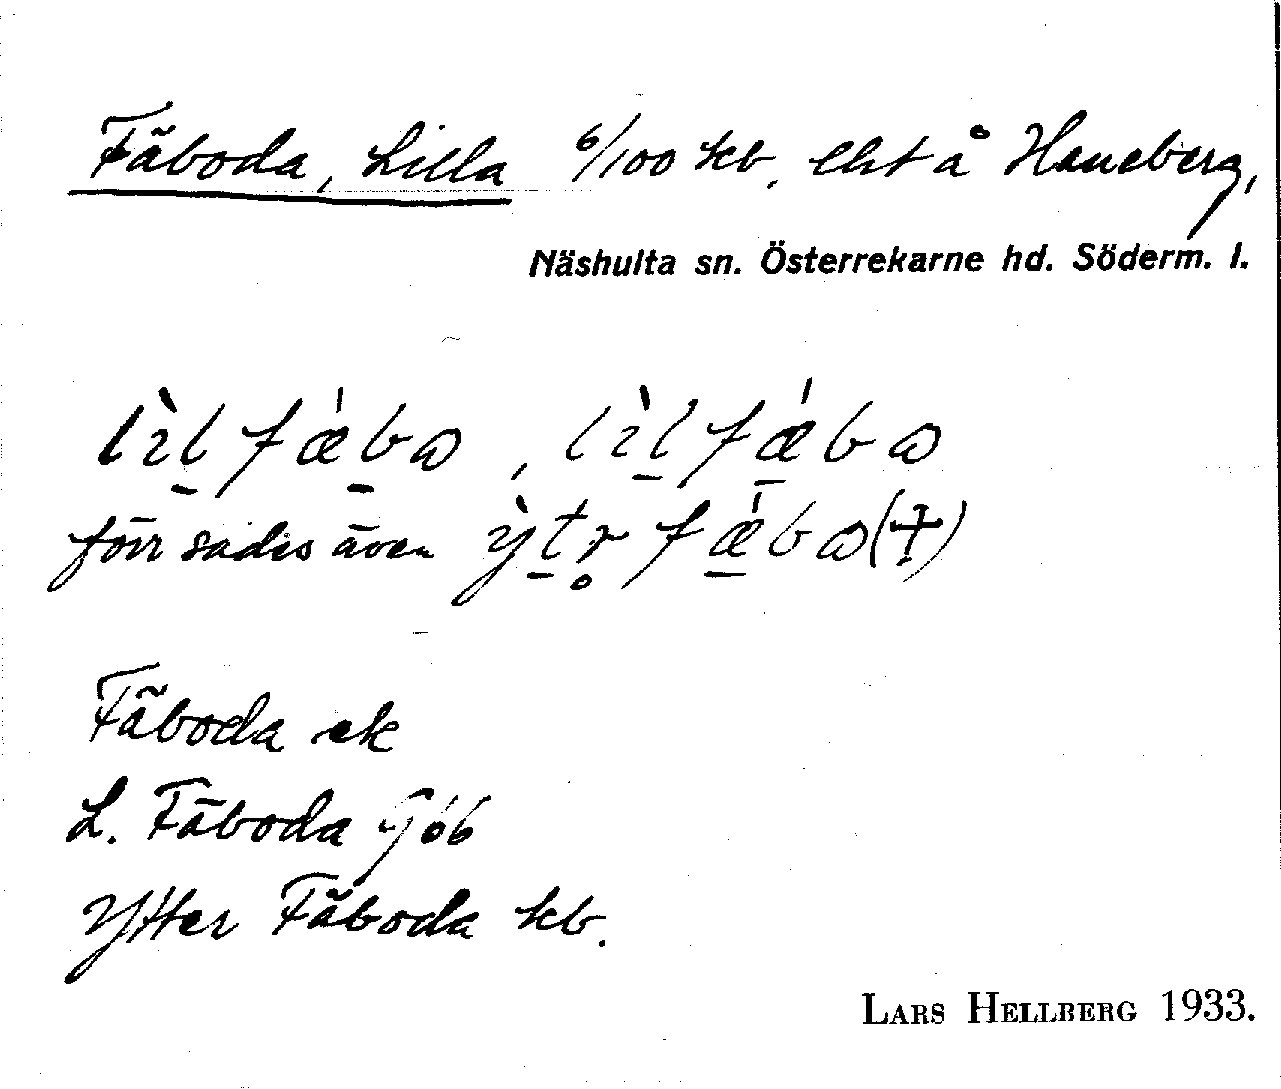 Fäboda, Lilla 6/100 kb, lht å Haneberg,
Näshulta sn. Österrekarne hd. Söderm. l.
lìlfǽbɷ, lìlfǽbɷ
förr sades även ỳtr̥fǽbɷ(†)
Fäboda ek
L. Fäboda Göb
Ytter Fäboda kb.
LARS HELLBERG 1933.